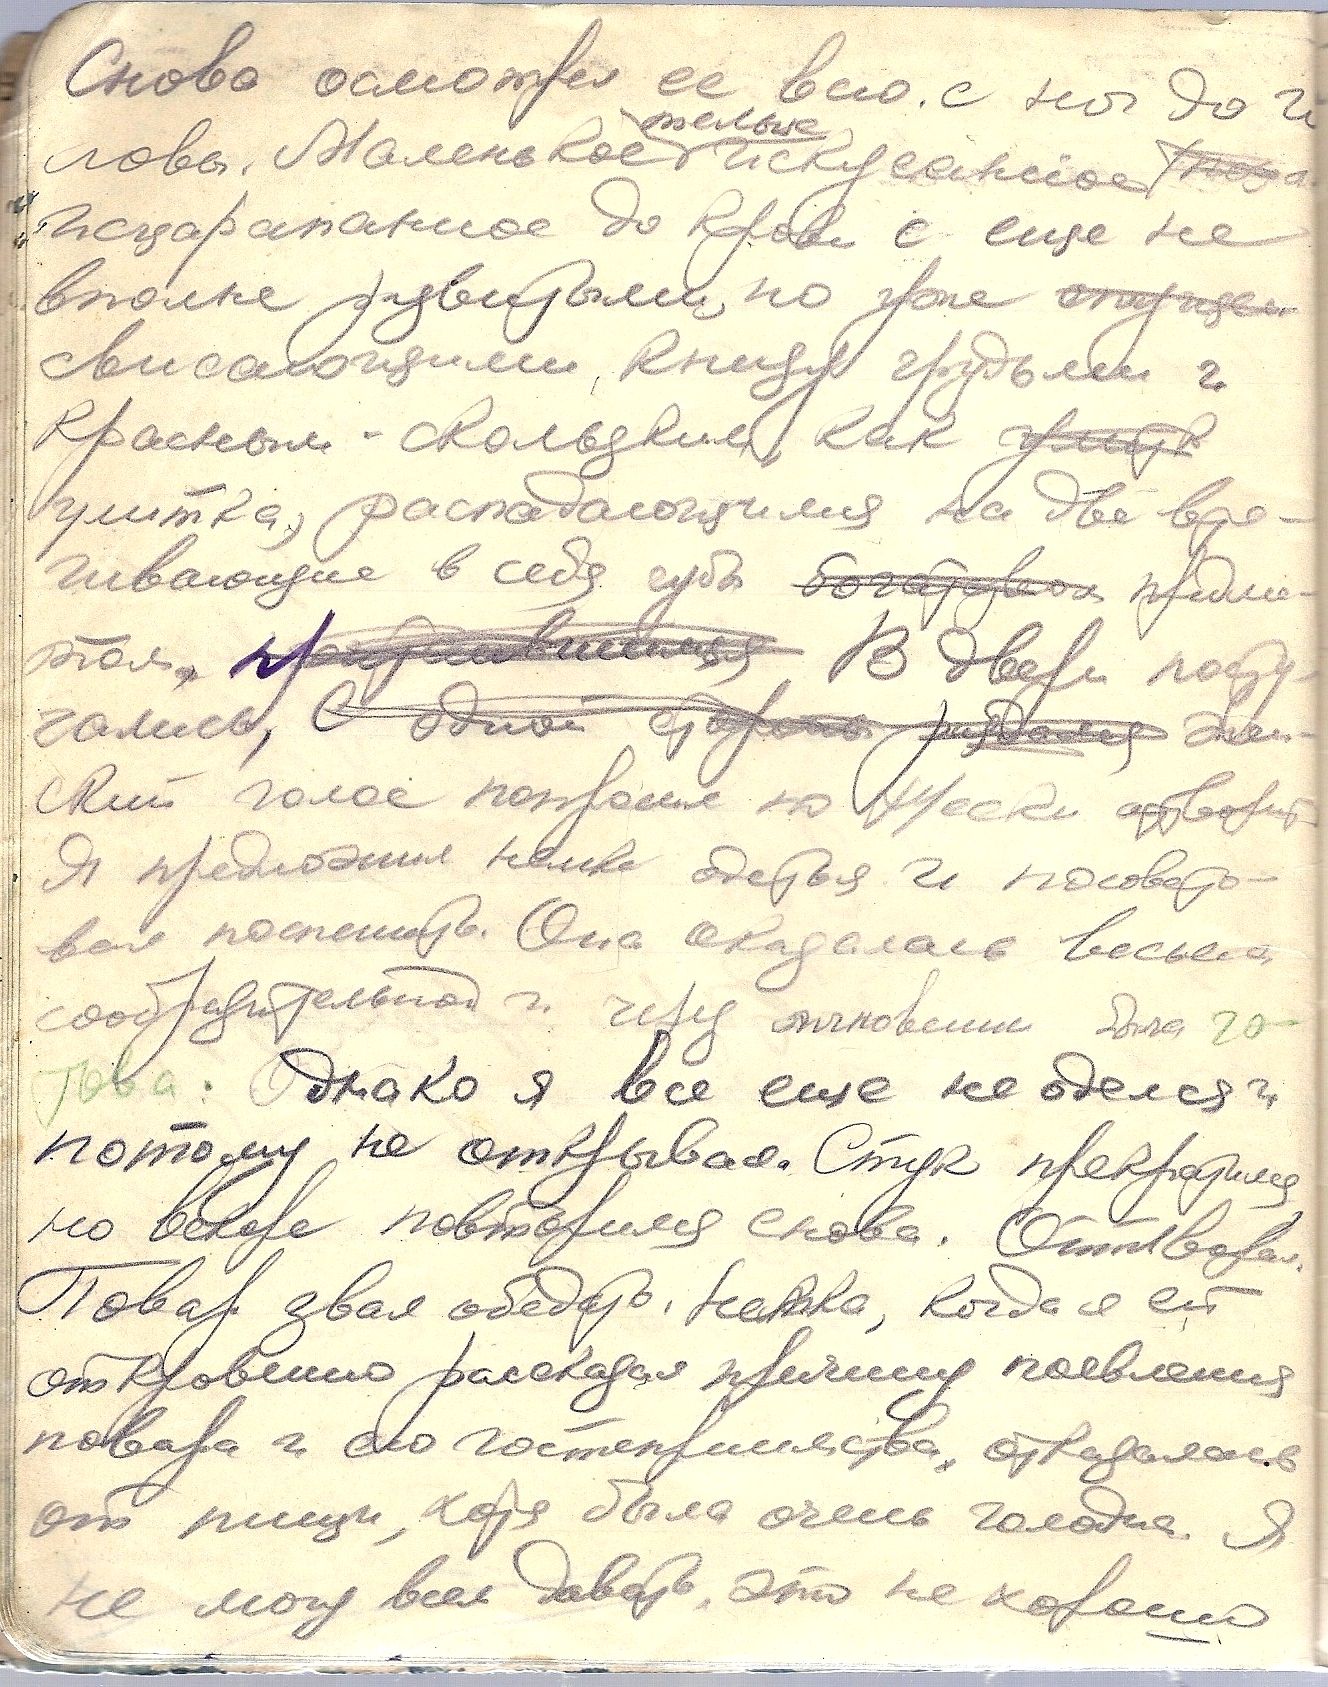 Снова осмотрел ее всю. с ног до го
ловы. Маленькое тельце искусанное
исцарапанное до крови с еще не
вполне развитыми, но уже
свисающими книзу грудьми и
красным - скользким, как
улитка, распадающимися на две втя-
гивающие в себя губы предме-
том, В двери посту-
чались, С одной стороны раздался жен-
ский голос попросил по отворить
Я предложил немке одеться и посовето-
вал поспешить. Она оказалась весьма
сообразительной и через мгновении была го-
това. Однако я все еще не оделся и
потому не открывал. Стук прекратился
но вскоре повторился снова. Отворил.
Повар звал обедать. Немка, когда я ей
откровенно рассказал причину появления
повара и его гостеприимства, отказалась
от пищи, хотя была очень голодна. Я
не могу всем давать, это не хорошо